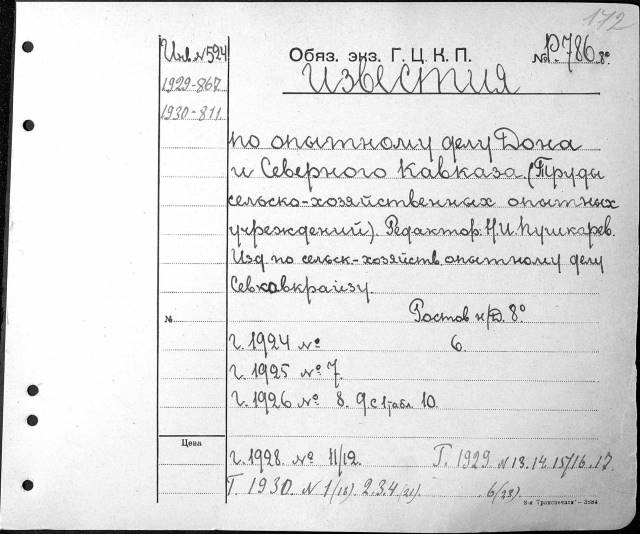 172
Инв. № 524
1929-867
1930-811
Обяз. экз. Г. Ц. К. П.
№ Р.786 8°
Известия
по опытному делу Дона
и Северного Кавказа. (Труды
сельско-хозяйственных опытных
учреждений). Редактор: Н.И. Пушкарев.
Изд по сельск-хозяйств опытному делу
Севкавкрайзу.
Ростов н/Д. 8°
№
г. 1924 № 6.
г. 1925 № 7.
г. 1926 № 8. 9 с 1 табл. 10.
Цена
г. 1928. № 11/12. Г. 1929 № 13. 14. 15/16. 17.
Г. 1930. № 1/(18). 2.3.4 (21). 6/(23).
8-я „Транспечати" — 3284